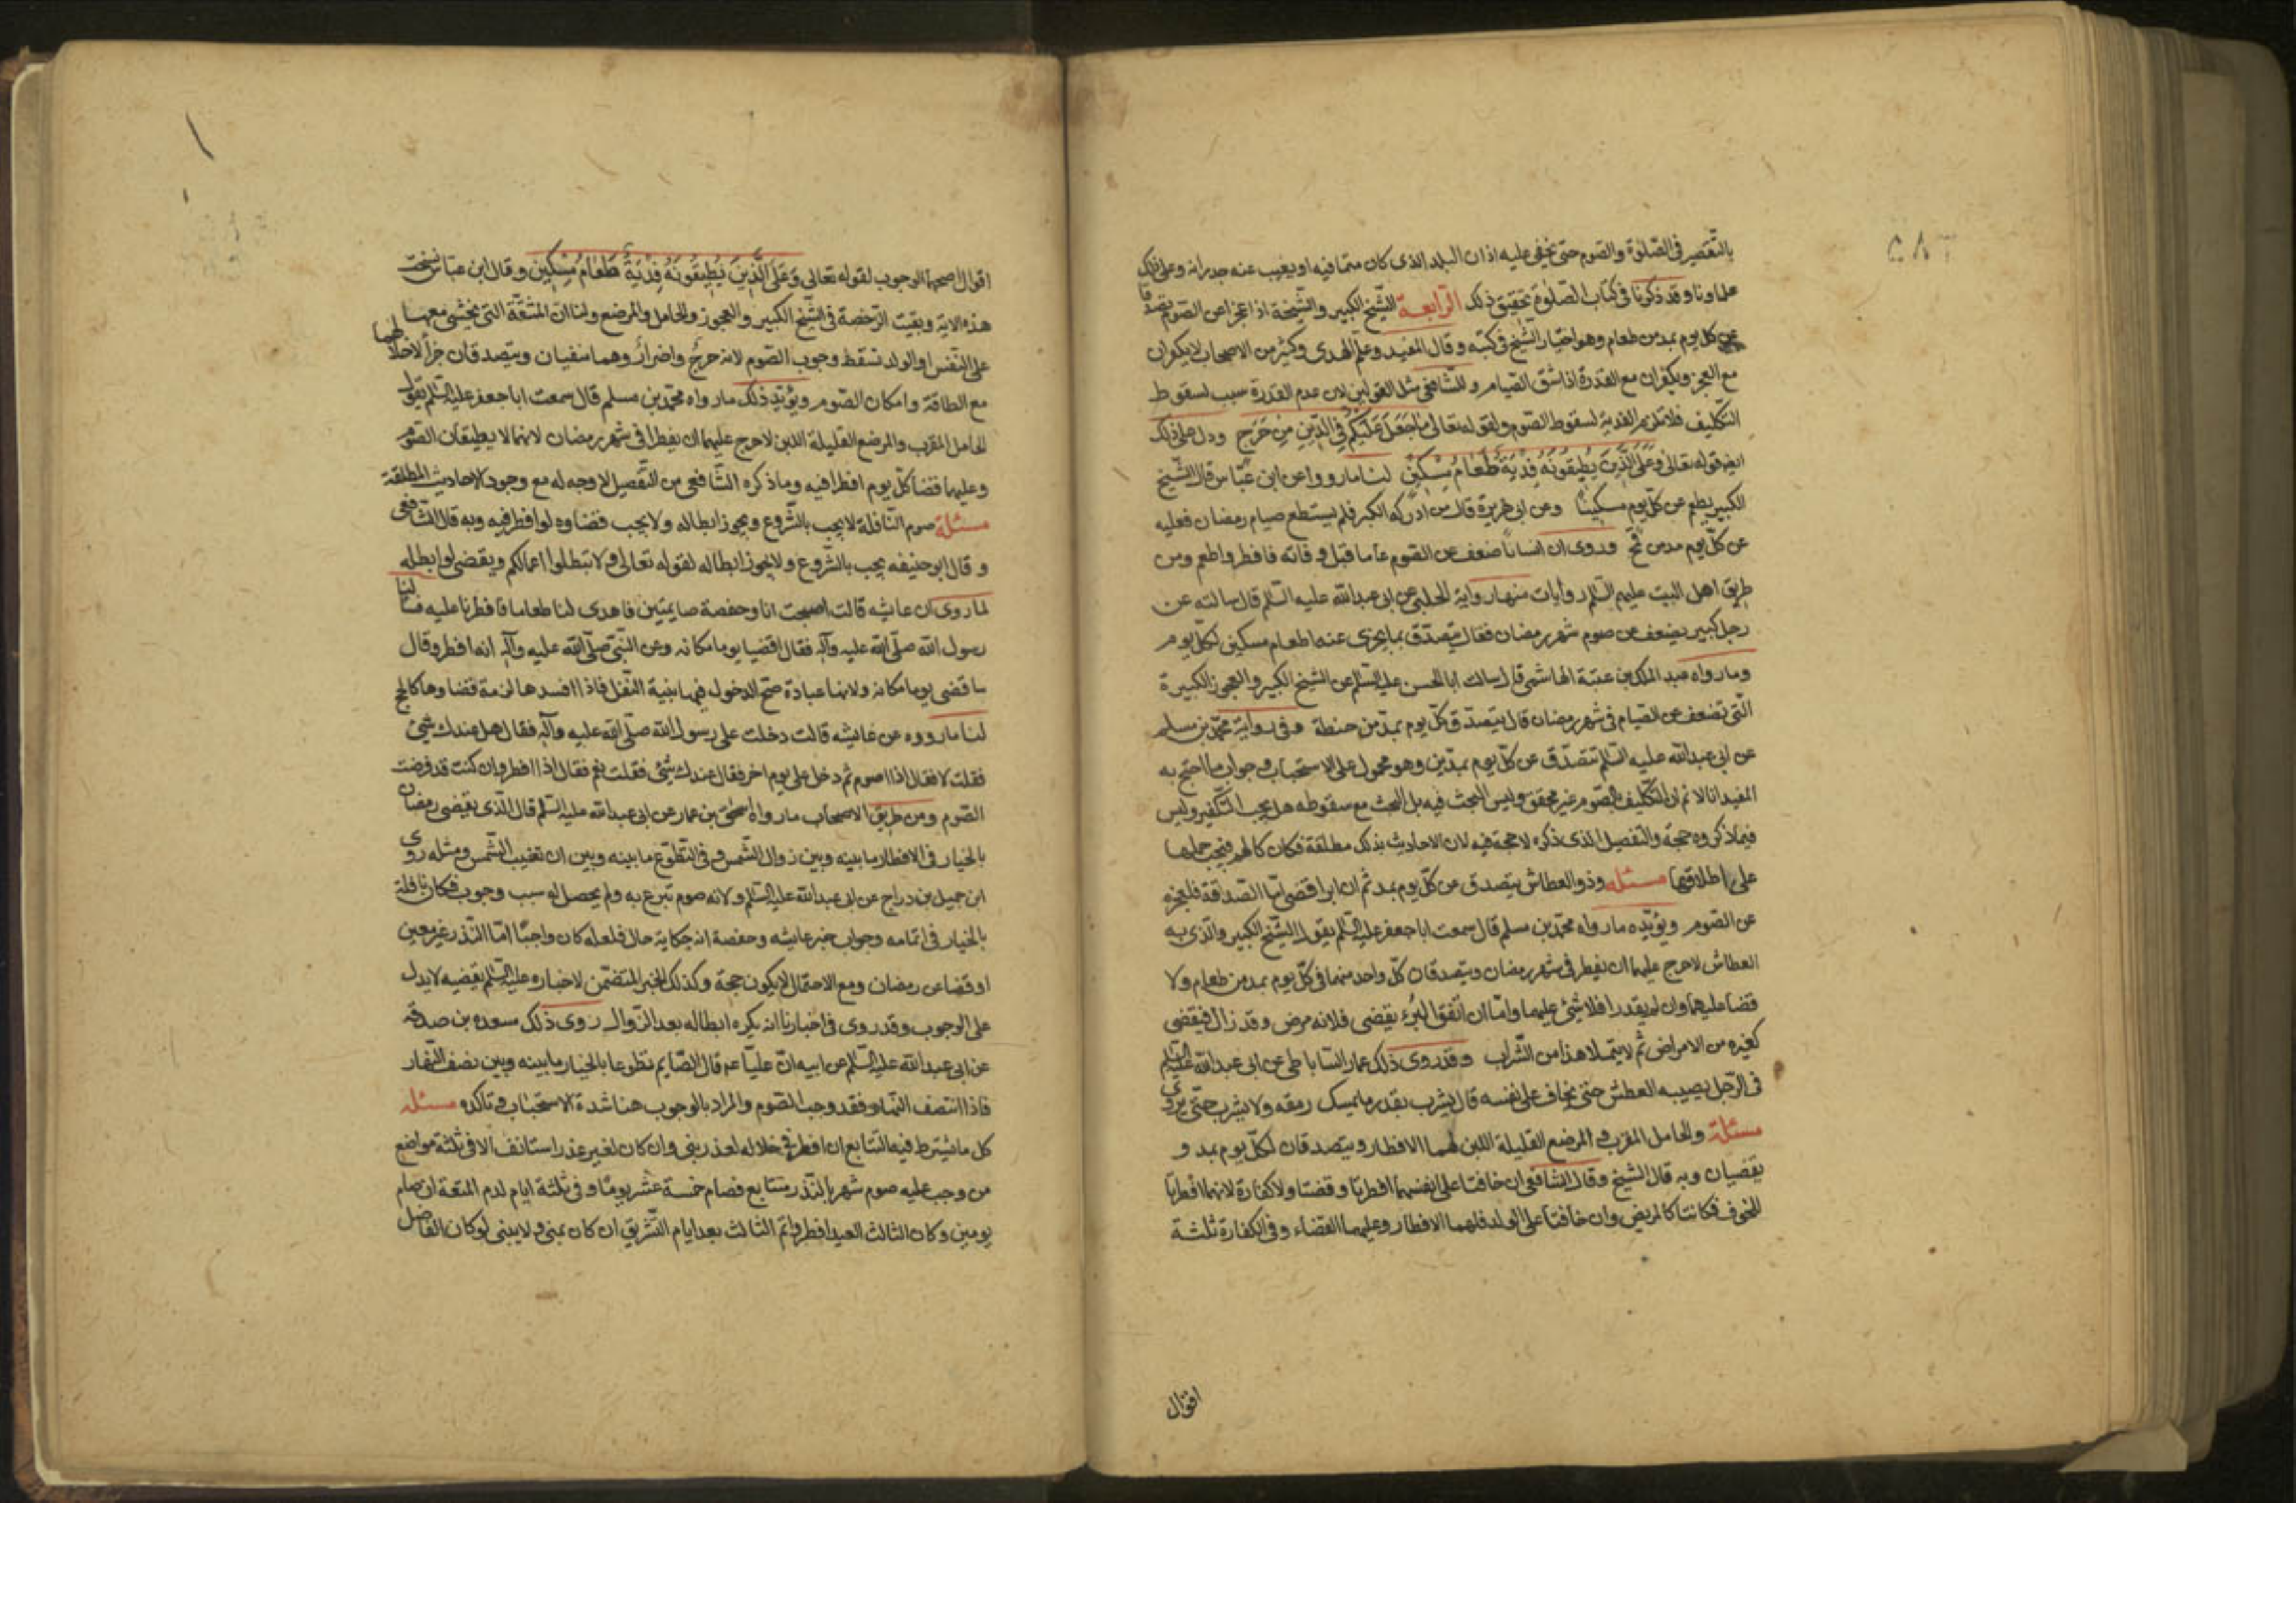 بالتقصير في الصلوة والصوم حتى يخفى عليه اذان البلد الذى كان متما فيه او يغيب عنه جدرانه وعلى ذلك
علماونا وقد ذكرنا في كتاب الصلوة تحقيق ذلك الرابعة الشيخ الكبير والشيخة اذا عجزا عن الصوم تصدقا
عن كل يوم بمد من طعام وهو اختيار الشيخ في كتبه وقال المفيد وعلم الهدى وكثير من الاصحاب لا يكفران
مع العجز ويكفران مع القدرة اذا شق الصيام وللشافعى مثل القولين لان عدم القدرة سبب لسقوط
التكليف فلا تلزم الفدية لسقوط الصوم ولقوله تعالى مَا جَعَلَ عَلَيْكُمْ فِي الدِّينِ مِنْ حَرَجٍ ودل على ذلك
ايضا قوله تعالى وَعَلَى الَّذِينَ يُطِيقُونَهُ فِدْيَةٌ طَعَامُ مِسْكِينٍ لنا ما رووا عن ابن عباس قال الشيخ
الكبير يطعم عن كل يوم مسكينا وعن ابى هريرة قال من ادركه الكبر فلم يستطع صيام رمضان فعليه
عن كل يوم مد من قمح وروى ان انسانا ضعف عن الصوم عاما قبل وفاته فافطر واطعم ومن
طريق اهل البيت عليهم السلم روايات منها رواية الحلبى عن ابى عبدالله عليه السلم قال سالته عن
رجل كبير يضعف عن صوم شهر رمضان فقال يتصدق بما يجزى عنه اطعام مسكين لكل يوم
وما رواه عبد الملك بن عتبة الهاشمى قال سالت ابا الحسن عليه السلم عن الشيخ الكبير والعجوز الكبيرة
التى تضعف عن الصيام في شهر رمضان قال يتصدق كل يوم بمد من حنطة وفى رواية محمد بن مسلم
عن ابى عبدالله عليه السلم تتصدق عن كل يوم بمدين وهو محمول على الاستحباب وجواب ما احتج به
المفيد انا لا نم ان التكليف بالصوم غير محقق وليس البحث فيه بل البحث مع سقوطه هل يجب التكفير وليس
فيما ذكروه حجة والتفصيل الذى ذكره لا حجة فيه لان الاحاديث بذلك مطلقة فكان كالهم فيجب حملها
على اطلاقها مسئله وذو العطاش يتصدق عن كل يوم بمد ثم ان ابرا قضى اما الصدقة فلعجزه
عن الصوم ويؤيده ما رواه محمد بن مسلم قال سمعت ابا جعفر عليه السلم يقول الشيخ الكبير والذى به
العطاش لا حرج عليهما ان يفطرا في شهر رمضان ويتصدقان كل واحد منهما في كل يوم بمد من طعام ولا
قضا عليهما وان لم يقدرا فلا شئ عليهما واما ان اتفق البرء يقضى فلانه مرض وقد زال فيقضى
كغيره من الامراض ثم لا يتملا هذا من الشراب وقد روى ذلك عمار الساباطى عن ابى عبدالله عليه السلم
في الرجل يصيبه العطش حتى يخاف على نفسه قال يشرب بقدر ما يمسك رمقه ولا يشرب حتى يروى
مسئلة والحامل المقرب والمرضع القليلة اللبن لهما الافطار ويتصدقان لكل يوم بمد و
يقضيان وبه قال الشيخ وقال الشافعى ان خافتا على انفسهما افطرتا وقضتا ولا كفارة لانهما افطرتا
للخوف فكانتا كالمريض وان خافتا على الولد فلهما الافطار وعليهما القضاء وفى الكفارة ثلثة
اقوال
اقوال اصحها الوجوب لقوله تعالى وَعَلَى الَّذِينَ يُطِيقُونَهُ فِدْيَةٌ طَعَامُ مِسْكِينٍ وقال ابن عباس نسخت
هذه الاية وبقيت الرخصة في الشيخ الكبير والعجوز والحامل والمرضع ولنا ان المشقة التى يخشى معها
على النفس او الولد تسقط وجوب الصوم لانه حرج واضرار وهما منفيان ويتصدقان جبرا لاخلالهما
مع الطاقة وامكان الصوم ويؤيد ذلك ما رواه محمد بن مسلم قال سمعت ابا جعفر عليه السلم يقول
الحامل المقرب والمرضع القليلة اللبن لا حرج عليهما ان يفطرا في شهر رمضان لانهما لا يطيقان الصوم
وعليهما قضا كل يوم افطرا فيه وما ذكره الشافعى من التفصيل لا وجه له مع وجود الاحاديث المطلقة
مسئلة صوم النافلة لا يجب بالشروع ويجوز ابطاله ولا يجب قضاوه لو افطر فيه وبه قال الشافعى
وقال ابو حنيفه يجب بالشروع ولا يجوز ابطاله لقوله تعالى ولا تبطلوا اعمالكم ويقضى لو ابطله
لما روى ان عايشه قالت اصبحت انا وحفصة صايمتين فاهدى لنا طعاما فافطرنا عليه فسالنا
رسول الله صلى الله عليه وآله فقال اقضيا يوما مكانه وعن النبى صلى الله عليه وآله انه افطر وقال
ساقضى يوما مكانه ولانها عبادة صح الدخول فيها بنية النفل فاذا افسدها لزمه قضاوها كالحج
لنا ما رووه عن عايشه قالت دخلت على رسول الله صلى الله عليه وآله فقال هل عندك شئ
فقلت لا فقال اذا اصوم ثم دخل على يوم اخر فقال عندك شئ فقلت نعم فقال اذا افطر وان كنت قد فرضت
الصوم ومن طريق الاصحاب ما رواه اسحق بن عمار عن ابى عبدالله عليه السلم قال الذى يقضى رمضان
بالخيار في الافطار ما بينه وبين زوال الشمس وفى التطوع ما بينه وبين ان تغيب الشمس ومثله روى
ابن جميل بن دراج عن ابى عبدالله عليه السلم ولانه صوم تبرع به ولم يحصل له سبب وجوب فكان نافلة
بالخيار في اتمامه وجواب خبر عايشه وحفصة انه حكاية حال فلعله كان واجبا اما النذر غير معين
او قضا عن رمضان ومع الاحتمال لا يكون حجة وكذلك الخبر المتضمن لاخباره عليه السلم بقضيه لا يدل
على الوجوب وقد روى في اخبارنا انه يكره ابطاله بعد الزوال روى ذلك سعده بن صدقه
عن ابى عبدالله عليه السلم عن ابيه ان عليا عم قال الصايم تطوعا بالخيار ما بينه وبين نصف النهار
فاذا انتصف النهار فقد وجب الصوم والمراد بالوجوب هنا شدة الاستحباب وتاكده مسئله
كل ما يشترط فيه التتابع ان افطر في خلاله لعذر بنى وان كان لغير عذر استانف الا في ثلثة مواضع
من وجب عليه صوم شهر بالنذر متتابع فصام خمسة عشر يوما وفى ثلثة ايام لدم المتعة ان صام
يومين وكان الثالث العيد افطر واتم الثالث بعد ايام التشريق ان كان بمنى ولا يبنى لو كان الفاضل